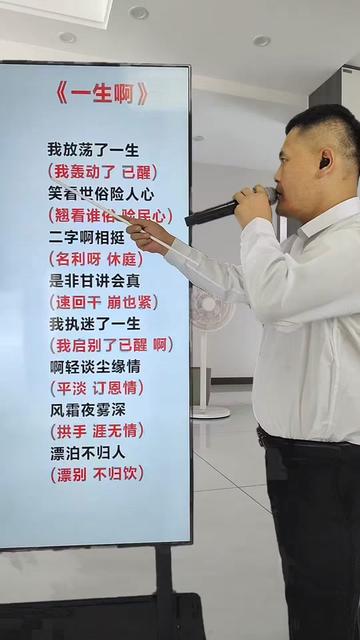 《一生啊》
我放荡了一生
(我轰动了 已醒)
笑看世俗险人心
(翘看谁俗 险民心)
二字啊相挺
(名利呀 休庭)
是非甘讲会真
(速回干 崩也紧)
我执迷了一生
(我启别了已醒 啊)
啊轻谈尘缘情
(平淡 订恩情)
风霜夜雾深
(拱手 涯无情)
漂泊不归人
(漂别 不归饮)